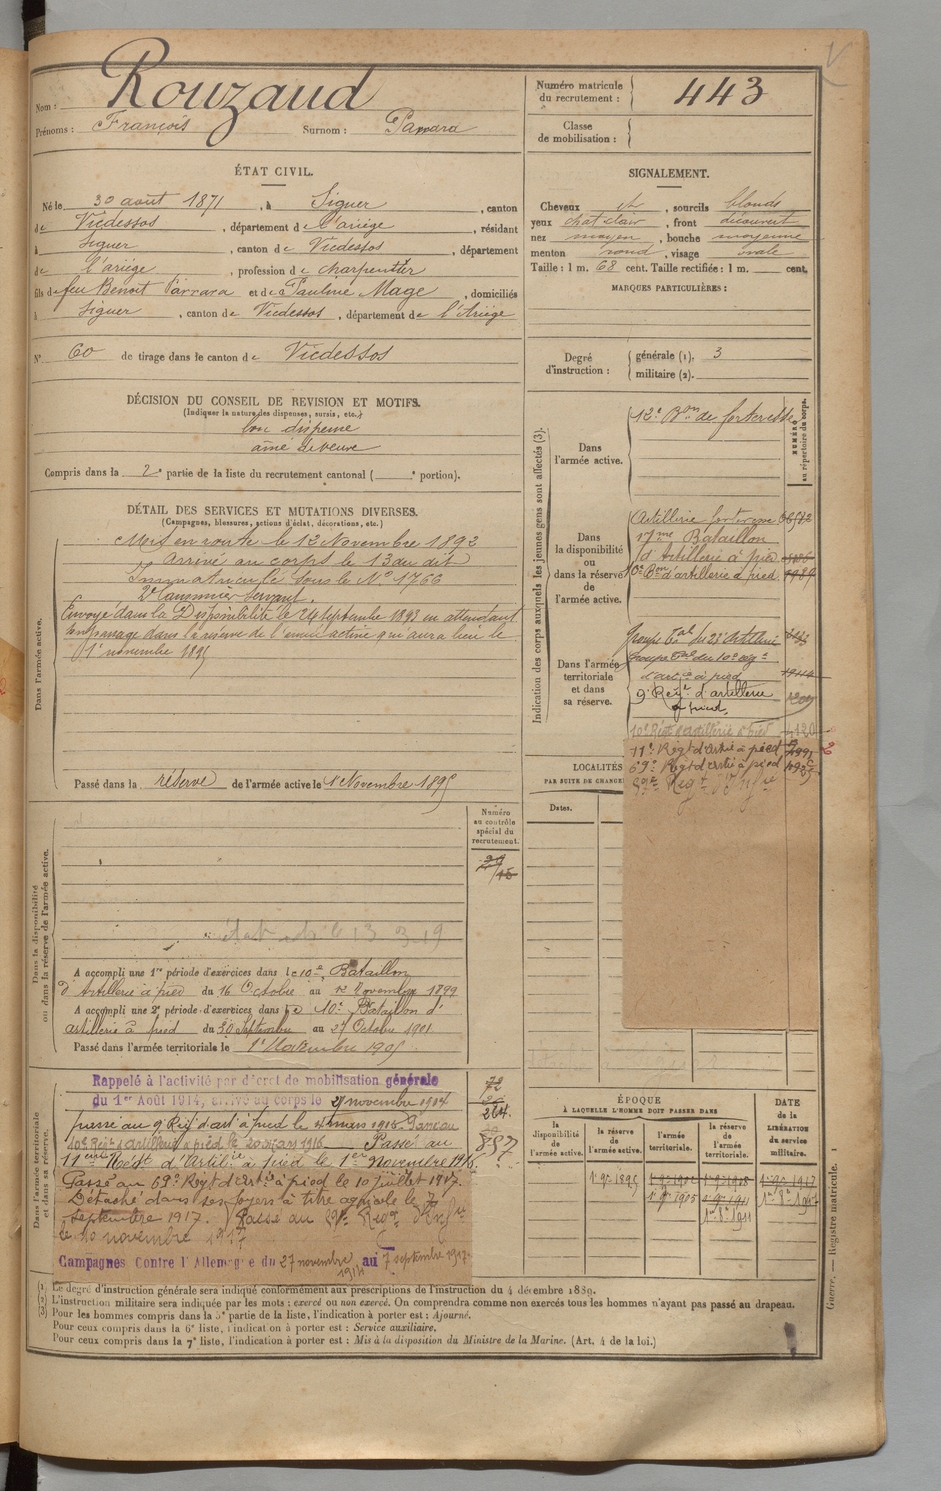 Nom : Rouzaud
Prénoms : François Surnom : Parrara
Numéro matricule du recrutement : 443
Classe de mobilisation :
ÉTAT CIVIL.
Né le 30 août 1871, à Siguer, canton
de Vicdessos, département de l'ariège, résidant
à Siguer, canton de Vicdessos, département
de l'ariège, profession de charpentier
fils de feu Benoit Parrara et de Pauline Mage, domiciliés
à Siguer, canton de Vicdessos, département de l'Ariège
N° 60 de tirage dans le canton de Vicdessos
SIGNALEMENT.
Cheveux et, sourcils blonds
yeux chat clair, front découvert
nez moyen, bouche moyenne
menton rond, visage ovale
Taille : 1 m. 68 cent. Taille rectifiée : 1 m. cent.
MARQUES PARTICULIÈRES :
Degré d'instruction : générale (1). 3
militaire (2).
DÉCISION DU CONSEIL DE REVISION ET MOTIFS.
(Indiquer la nature des dispenses, sursis, etc.)
bon dispensé
aîné de veuve
Compris dans la 2e partie de la liste du recrutement cantonal ( e portion).
DÉTAIL DES SERVICES ET MUTATIONS DIVERSES.
(Campagnes, blessures, actions d'éclat, décorations, etc.)
Dans l'armée active.
Mis en route le 12 Novembre 1892
arrivé au corps le 13 du dit
Immatriculé sous le N° 1766
2e Canonnier Servant.
Envoyé dans la Disponibilité le 24 septembre 1893 en attendant
son passage dans la réserve de l'armée active qui aura lieu le
1er novembre 1895
Passé dans la réserve de l'armée active le 1er Novembre 1895
Indication des corps auxquels les jeunes gens sont affectés (3).
NUMÉRO au répertoire du corps.
Dans l'armée active.
12e Bon de forteresse
Dans la disponibilité ou dans la réserve de l'armée active.
Artillerie forteresse
17me Bataillon
d'Artillerie à pied
10e Bon d'artillerie à pied
Dans l'armée territoriale et dans sa réserve.
Groupe Tal du 23e Artillerie
Groupe Tal du 10e rég.t
d'art.ie à pied
9e Régt d'artillerie
à pied
10e Régt d'artillerie à pied
11e Régt d'artie à pied
69e Régt d'artie à pied
LOCALITÉS
PAR SUITE DE CHANGE
Dates.
Numéro au contrôle spécial du recrutement.
Dans la disponibilité ou dans la réserve de l'armée active.
A accompli une 1re période d'exercices dans le 10e Bataillon
d'Artillerie à pied du 16 Octobre au 12 Novembre 1899
A accompli une 2e période d'exercices dans le 10e Bataillon d'
artillerie à pied du 30 Septembre au 27 Octobre 1901
Passé dans l'armée territoriale le 1er Novembre 1905
Dans l'armée territoriale et dans sa réserve.
Rappelé à l'activité par décret de mobilisation générale
du 1er Août 1914, arrivé au corps le 27 novembre 1914
passé au 9e Régt d'art à pied le 4 mars 1915. Passé au
10e Régt d'artillerie à pied le 20 mars 1916 Passé au
11ème Régt d'Artillie à pied le 1er Novembre 1916.
Passé au 69e Régt d'Artie à pied le 10 juillet 1917.
Détaché dans ses foyers à titre agricole le 7
septembre 1917. Passé au
le 10 novembre 1917
Campagnes Contre l'Allemagne du 27 novembre 1914 au 7 septembre 1917
72
264.
857
ÉPOQUE
À LAQUELLE L'HOMME DOIT PASSER DANS
la disponibilité de l'armée active.
la réserve de l'armée active.
l'armée territoriale.
la réserve de l'armée territoriale.
DATE de la LIBÉRATION du service militaire.
Guerre. — Registre matricule. 1
(1) Le degré d'instruction générale sera indiqué conformément aux prescriptions de l'instruction du 4 décembre 1889.
(2) L'instruction militaire sera indiquée par les mots : exercé ou non exercé. On comprendra comme non exercés tous les hommes n'ayant pas passé au drapeau.
(3) Pour les hommes compris dans la 5e partie de la liste, l'indication à porter est : Ajourné.
Pour ceux compris dans la 6e liste, l'indication à porter est : Service auxiliaire.
Pour ceux compris dans la 7e liste, l'indication à porter est : Mis à la disposition du Ministre de la Marine. (Art. 4 de la loi.)